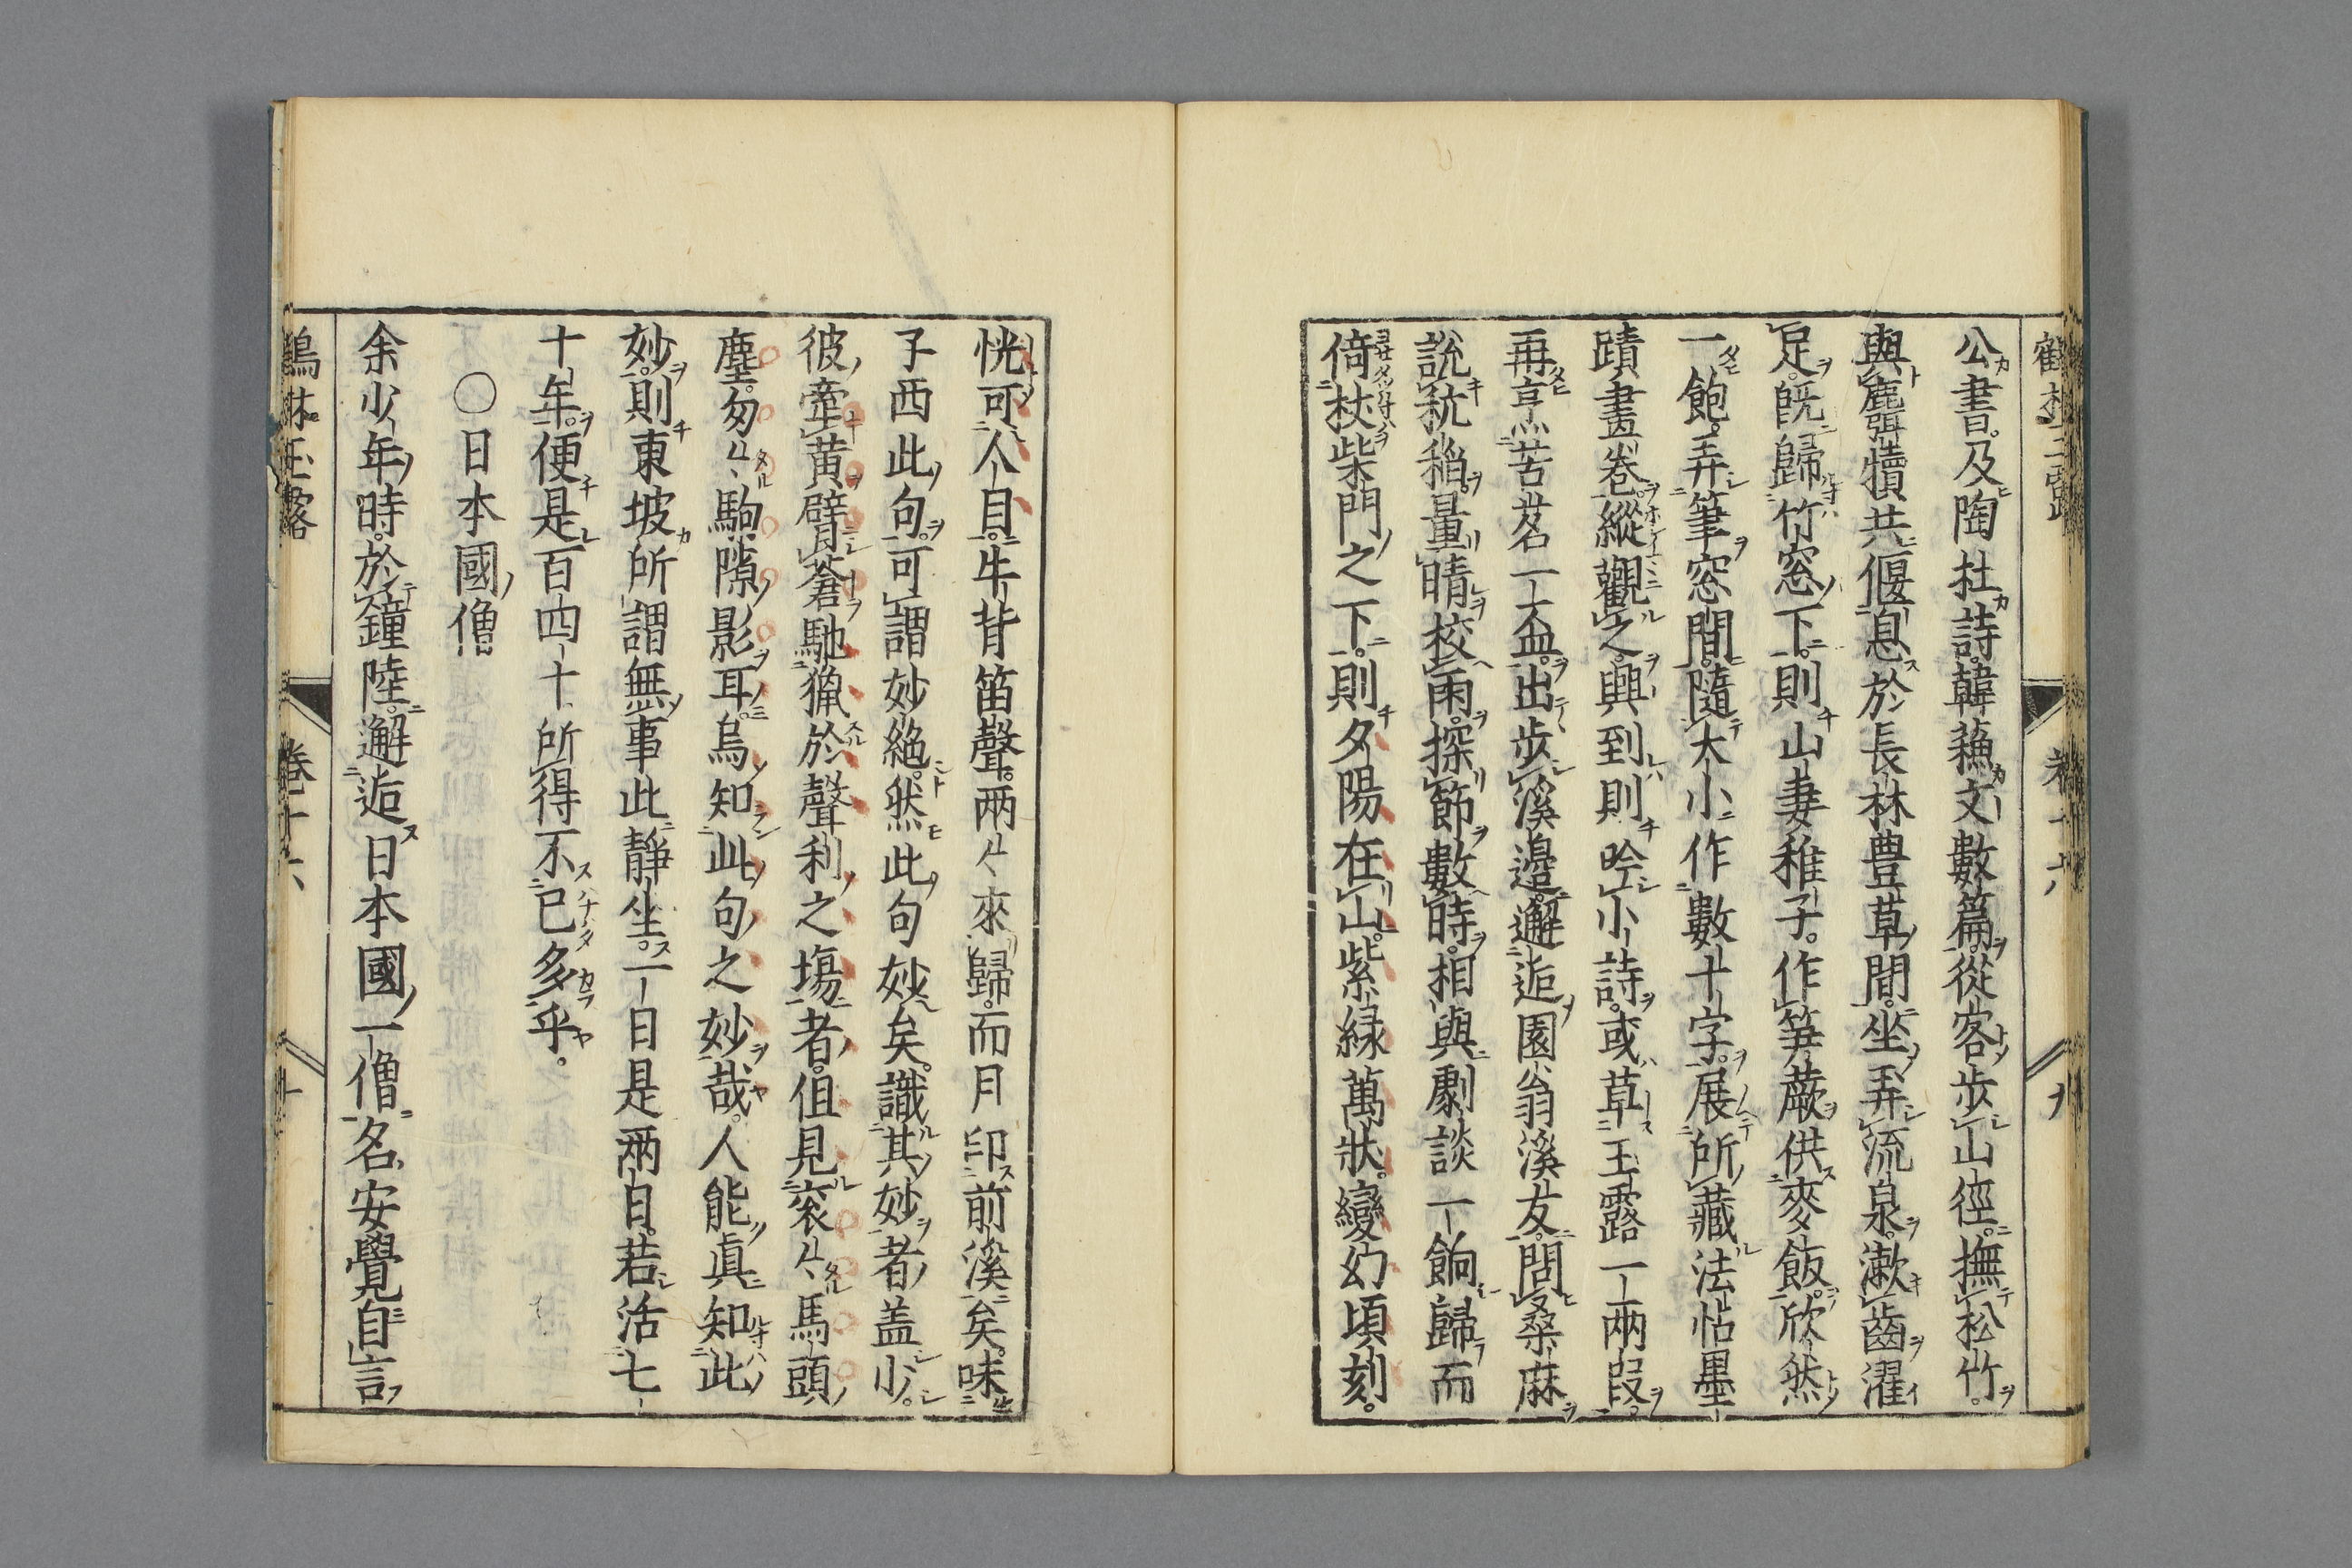 公書及陶杜詩韓蘓文數篇從容歩山徑撫松竹
與麛犢共偃息於長林豊草間坐弄流泉漱齒濯
足既歸竹窓下則山妻稚子作笋蕨供麥飯欣然
一飽弄筆窓間隨大小作數十字展所藏法帖墨
蹟畫卷縱觀之興到則吟小詩或草玉露一兩段
再烹苦茗一盃出歩溪邊邂逅園翁溪友問桑麻
説秔稲量晴校雨探節數時相與劇談一餉歸而
倚杖柴門之下則夕陽在山紫緑萬狀變幻頃刻
恍可人目牛背笛聲兩〻來歸而月印前溪矣味
子西此句可謂妙絶然此句妙矣識其妙者盖少
彼牽黄臂蒼馳獵於聲利之塲者但見衮〻馬頭
塵匆〻駒隙影耳烏知此句之妙哉人能眞知此
妙則東坡所謂無事此靜坐一日是兩日若活七
十年便是百四十所得不已多乎
〇日本國僧
余少年時於鐘陸邂逅日本國一僧名安覺自言
鶴林玉露 卷十六